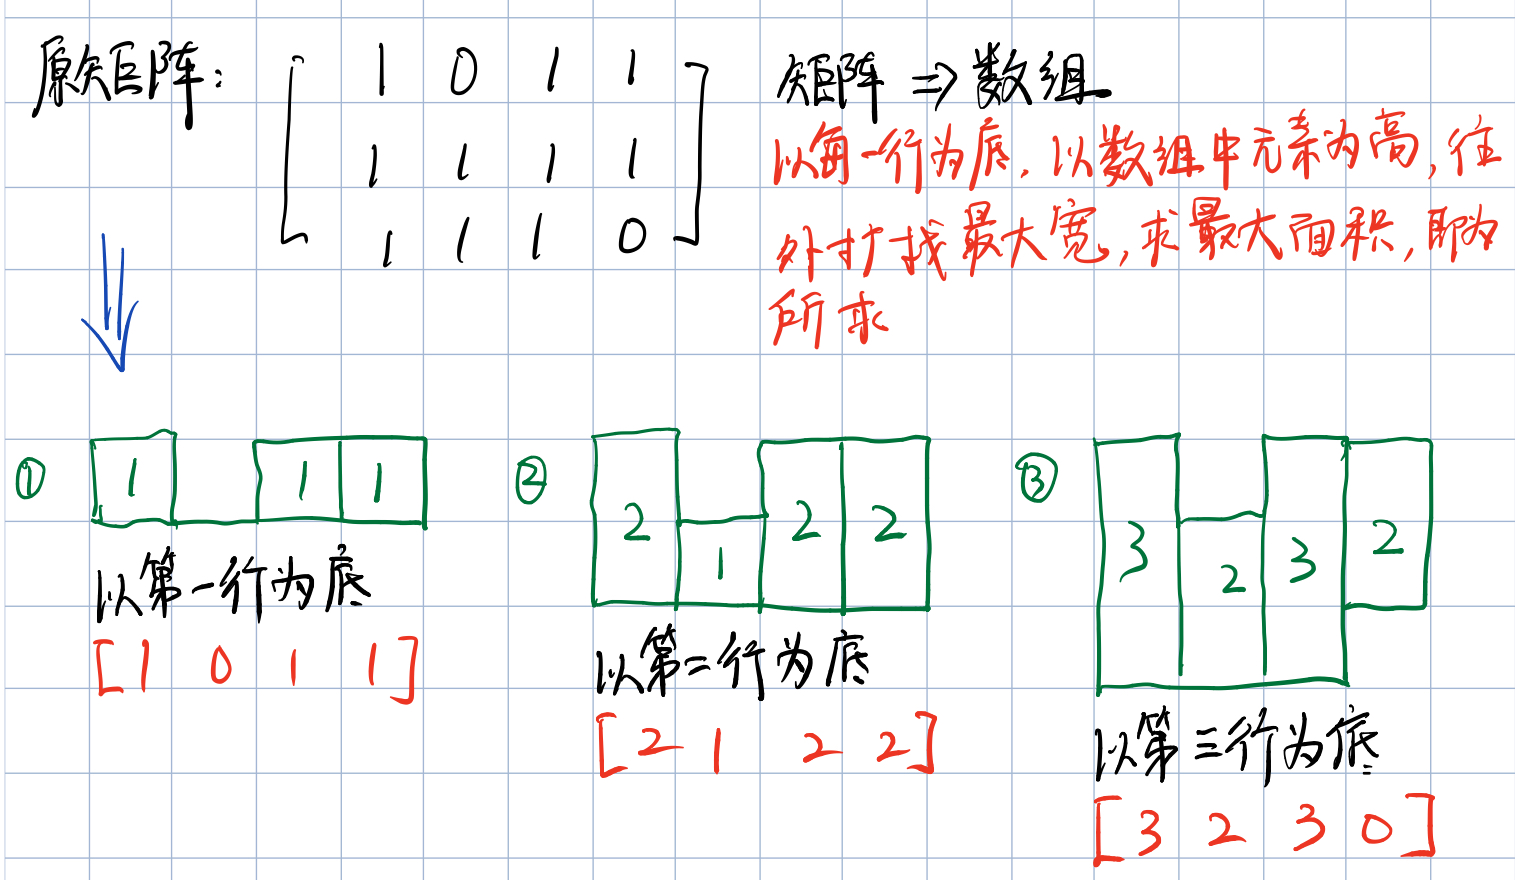 原矩阵：
1 0 1 1
1 1 1 1
1 1 1 0
矩阵 => 数组
以每一行为底，以数组中元素为高，往
外扩找最大宽，求最大面积，即为
所求
① 1 1 1
以第一行为底
[1 0 1 1]
② 2 1 2 2
以第二行为底
[2 1 2 2]
③ 3 2 3 2
以第三行为底
[3 2 3 0]